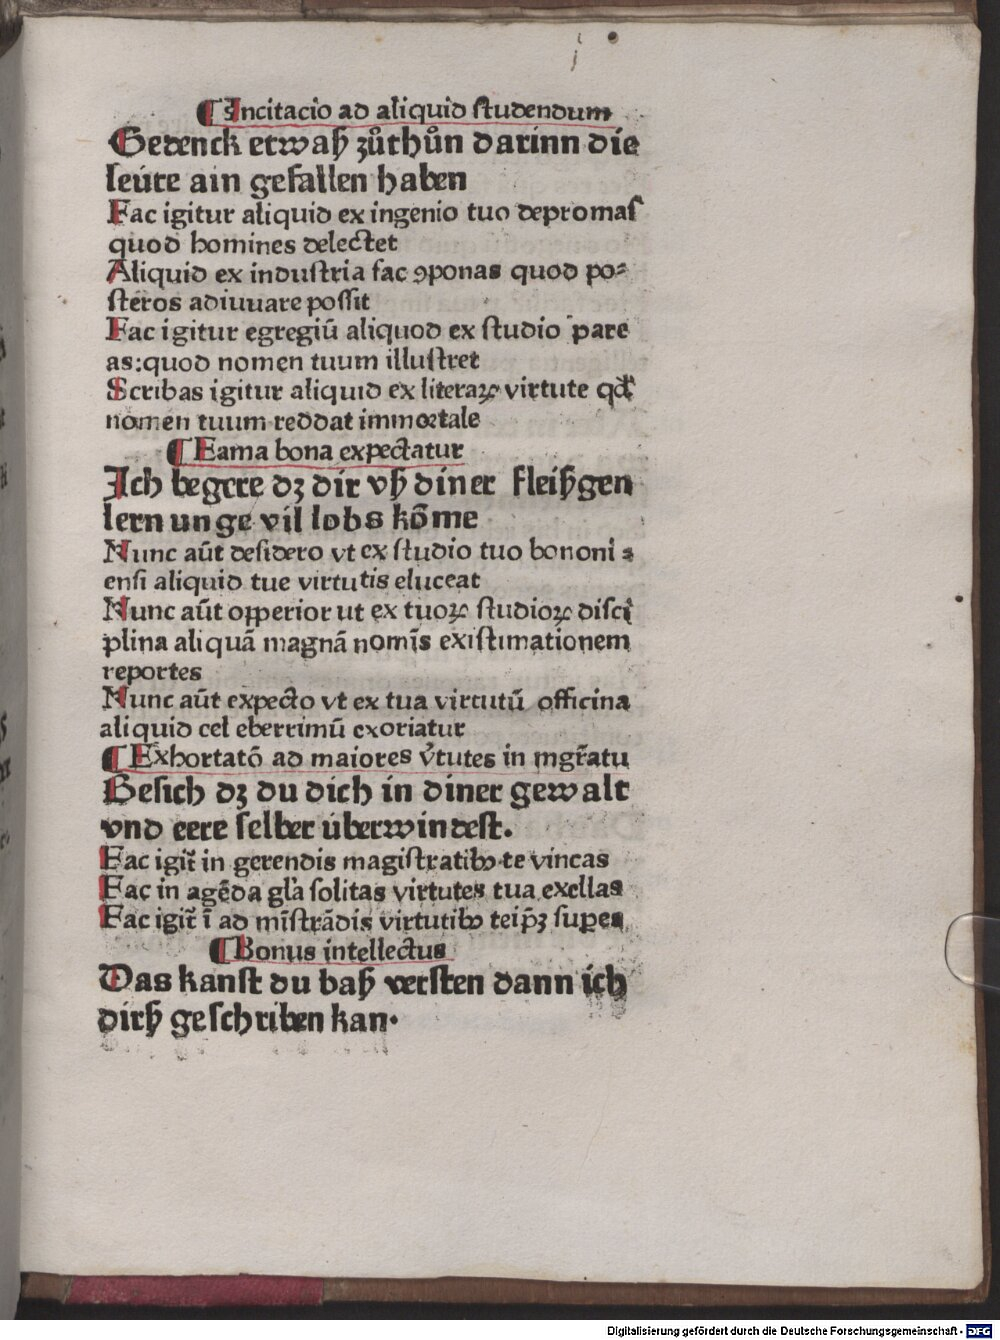 ¶ Incitacio ad aliquid studendum
Gedenck etwaß zůthůn darinn die
leúte ain gefallen haben
Fac igitur aliquid ex ingenio tuo depromas
quod homines delectet
Aliquid ex industria fac ꝯponas quod po⸗
steros adiuuare possit
Fac igitur egregiū aliquod ex studio pare
as:quod nomen tuum illustret
Scribas igitur aliquid ex literaꝝ virtute qď
nomen tuum reddat immortale
¶ Fama bona expectatur
Ich begere dz dir vß diner fleißgen
lern unge vil lobs kōme
Nunc aūt desidero vt ex studio tuo bononi⸗
ensi aliquid tue virtutis eluceat
Nunc aūt opperior ut ex tuoꝝ studioꝝ disci
plina aliquā magnā nomīs existimationem
reportes
Nunc aūt expecto vt ex tua virtutū officina
aliquid celeberrimū exoriatur
¶ Exhortatō ad maiores v̓tutes in mgr̄atu
Besich dz du dich in diner gewalt
vnd eere selber úberwindest.
Fac igit̄ in gerendis magistratibꝫ te vincas
Fac in agēda gl̓a solitas virtutes tua exellas
Fac igit̄ ī ad mīstrādis virtutibꝫ teip̄ꝫ suꝑes
¶ Bonus intellectus
Das kanst du baß versten dann ich
dirß geschriben kan.
Digitalisierung gefördert durch die Deutsche Forschungsgemeinschaft - DFG